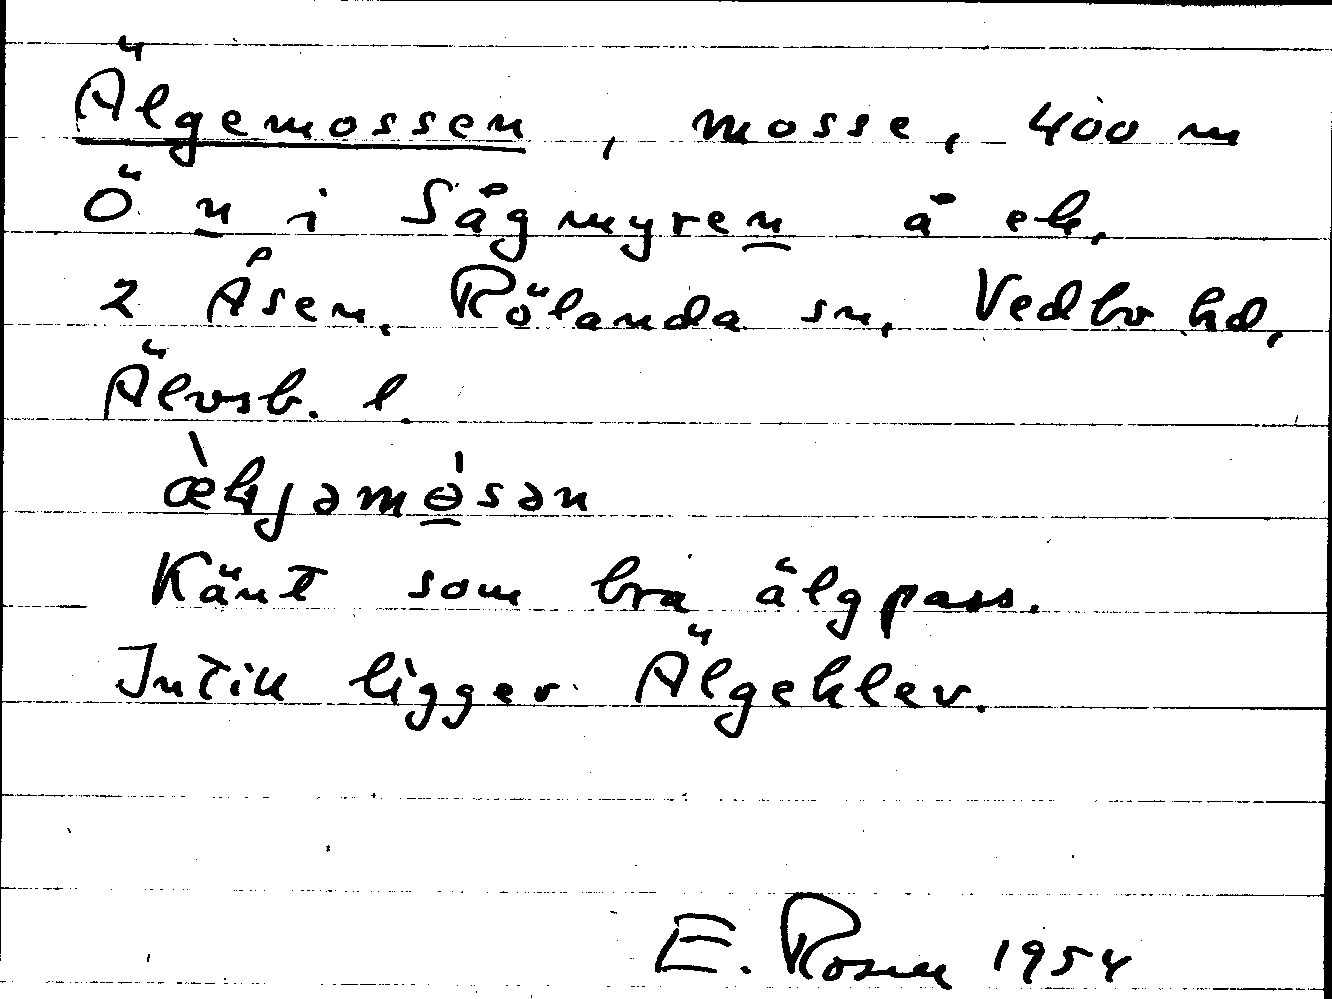 Älgemossen, mosse, 400 m
Ö n i Sågmyren å ek.
2 Åsen. Rölanda sn, Vedbo hd,
Älvsb. l.
Känt som bra älgpass.
Intill ligger Älgeklev.
E. Rosen 1954